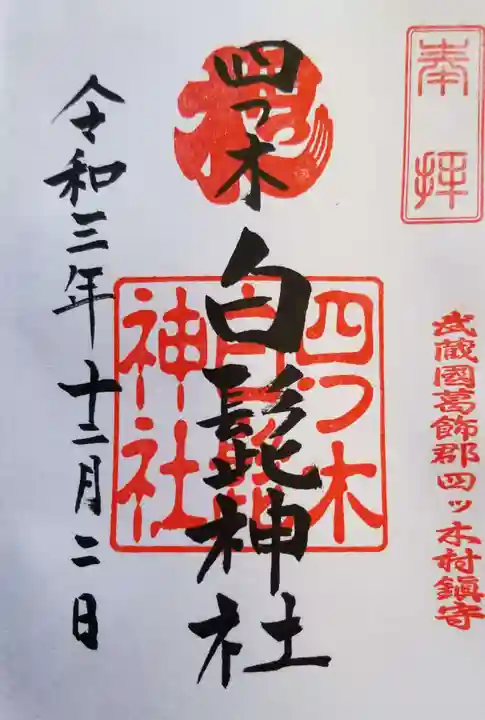 奉拝
武蔵國葛飾郡四ッ木村鎮守
四つ木
白髭神社
四つ木
白髭
神社
令和三年十二月二日